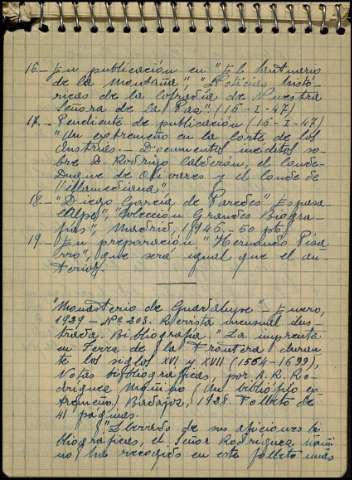 16.- En publicación en "El Santuario
de la Montaña", "Noticias histó-
ricas de la Cofradía de Nuestra
Señora de la Paz". (15-I-47)
17.- Pendiente de publicación (15-I-47)
"Un extremeño en la corte de los
Austrias. - Documentos inéditos so-
bre D. Rodrigo Calderón, el Conde-
Duque de Olivares y el Conde de
Villamediana".
18.- "Diego García de Paredes" Espasa
Calpe, Colección Grandes Biogra-
fías, Madrid, 1946.
19.- En preparación "Hernando Piza-
rro", que será igual que el an-
terior.
"Monasterio de Guadalupe" - Enero,
1929 - Nº 293. Revista mensual ilus-
trada. Bibliografía. "La imprenta
en Jerez de la Frontera duran-
te los siglos XVI y XVII (1564-1699),
Notas bibliográficas, por A. R. Ro-
dríguez Moñino (Un bibliófilo ex-
tremeño) Badajoz, 1928. Folleto de
41 páginas.
de sus aficiones bi-
bliográficas, el señor Rodríguez Moñi-
no ha recogido en este folleto unas